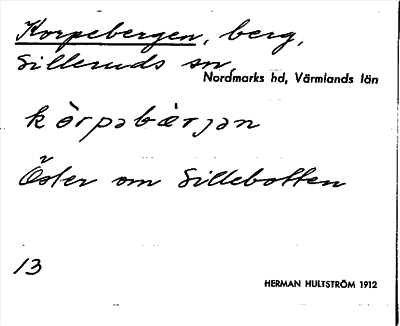 Korpebergen, berg,
Silleruds sn,
Nordmarks hd, Värmlands län
kòrpəbær̀jən
Öster om Sillebotten
13
HERMAN HULTSTRÖM 1912